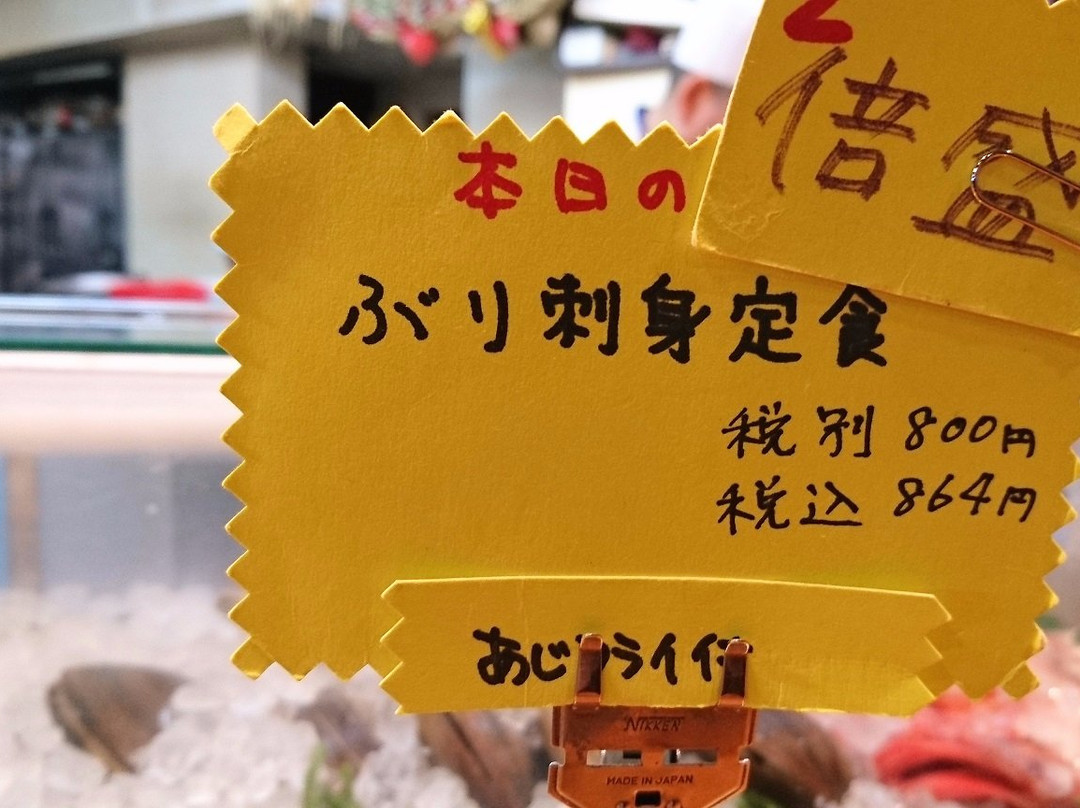 2
倍盛
本日の
ぶり刺身定食
税別 800円
税込 864円
あじフライ付
NIKKEN
MADE IN JAPAN